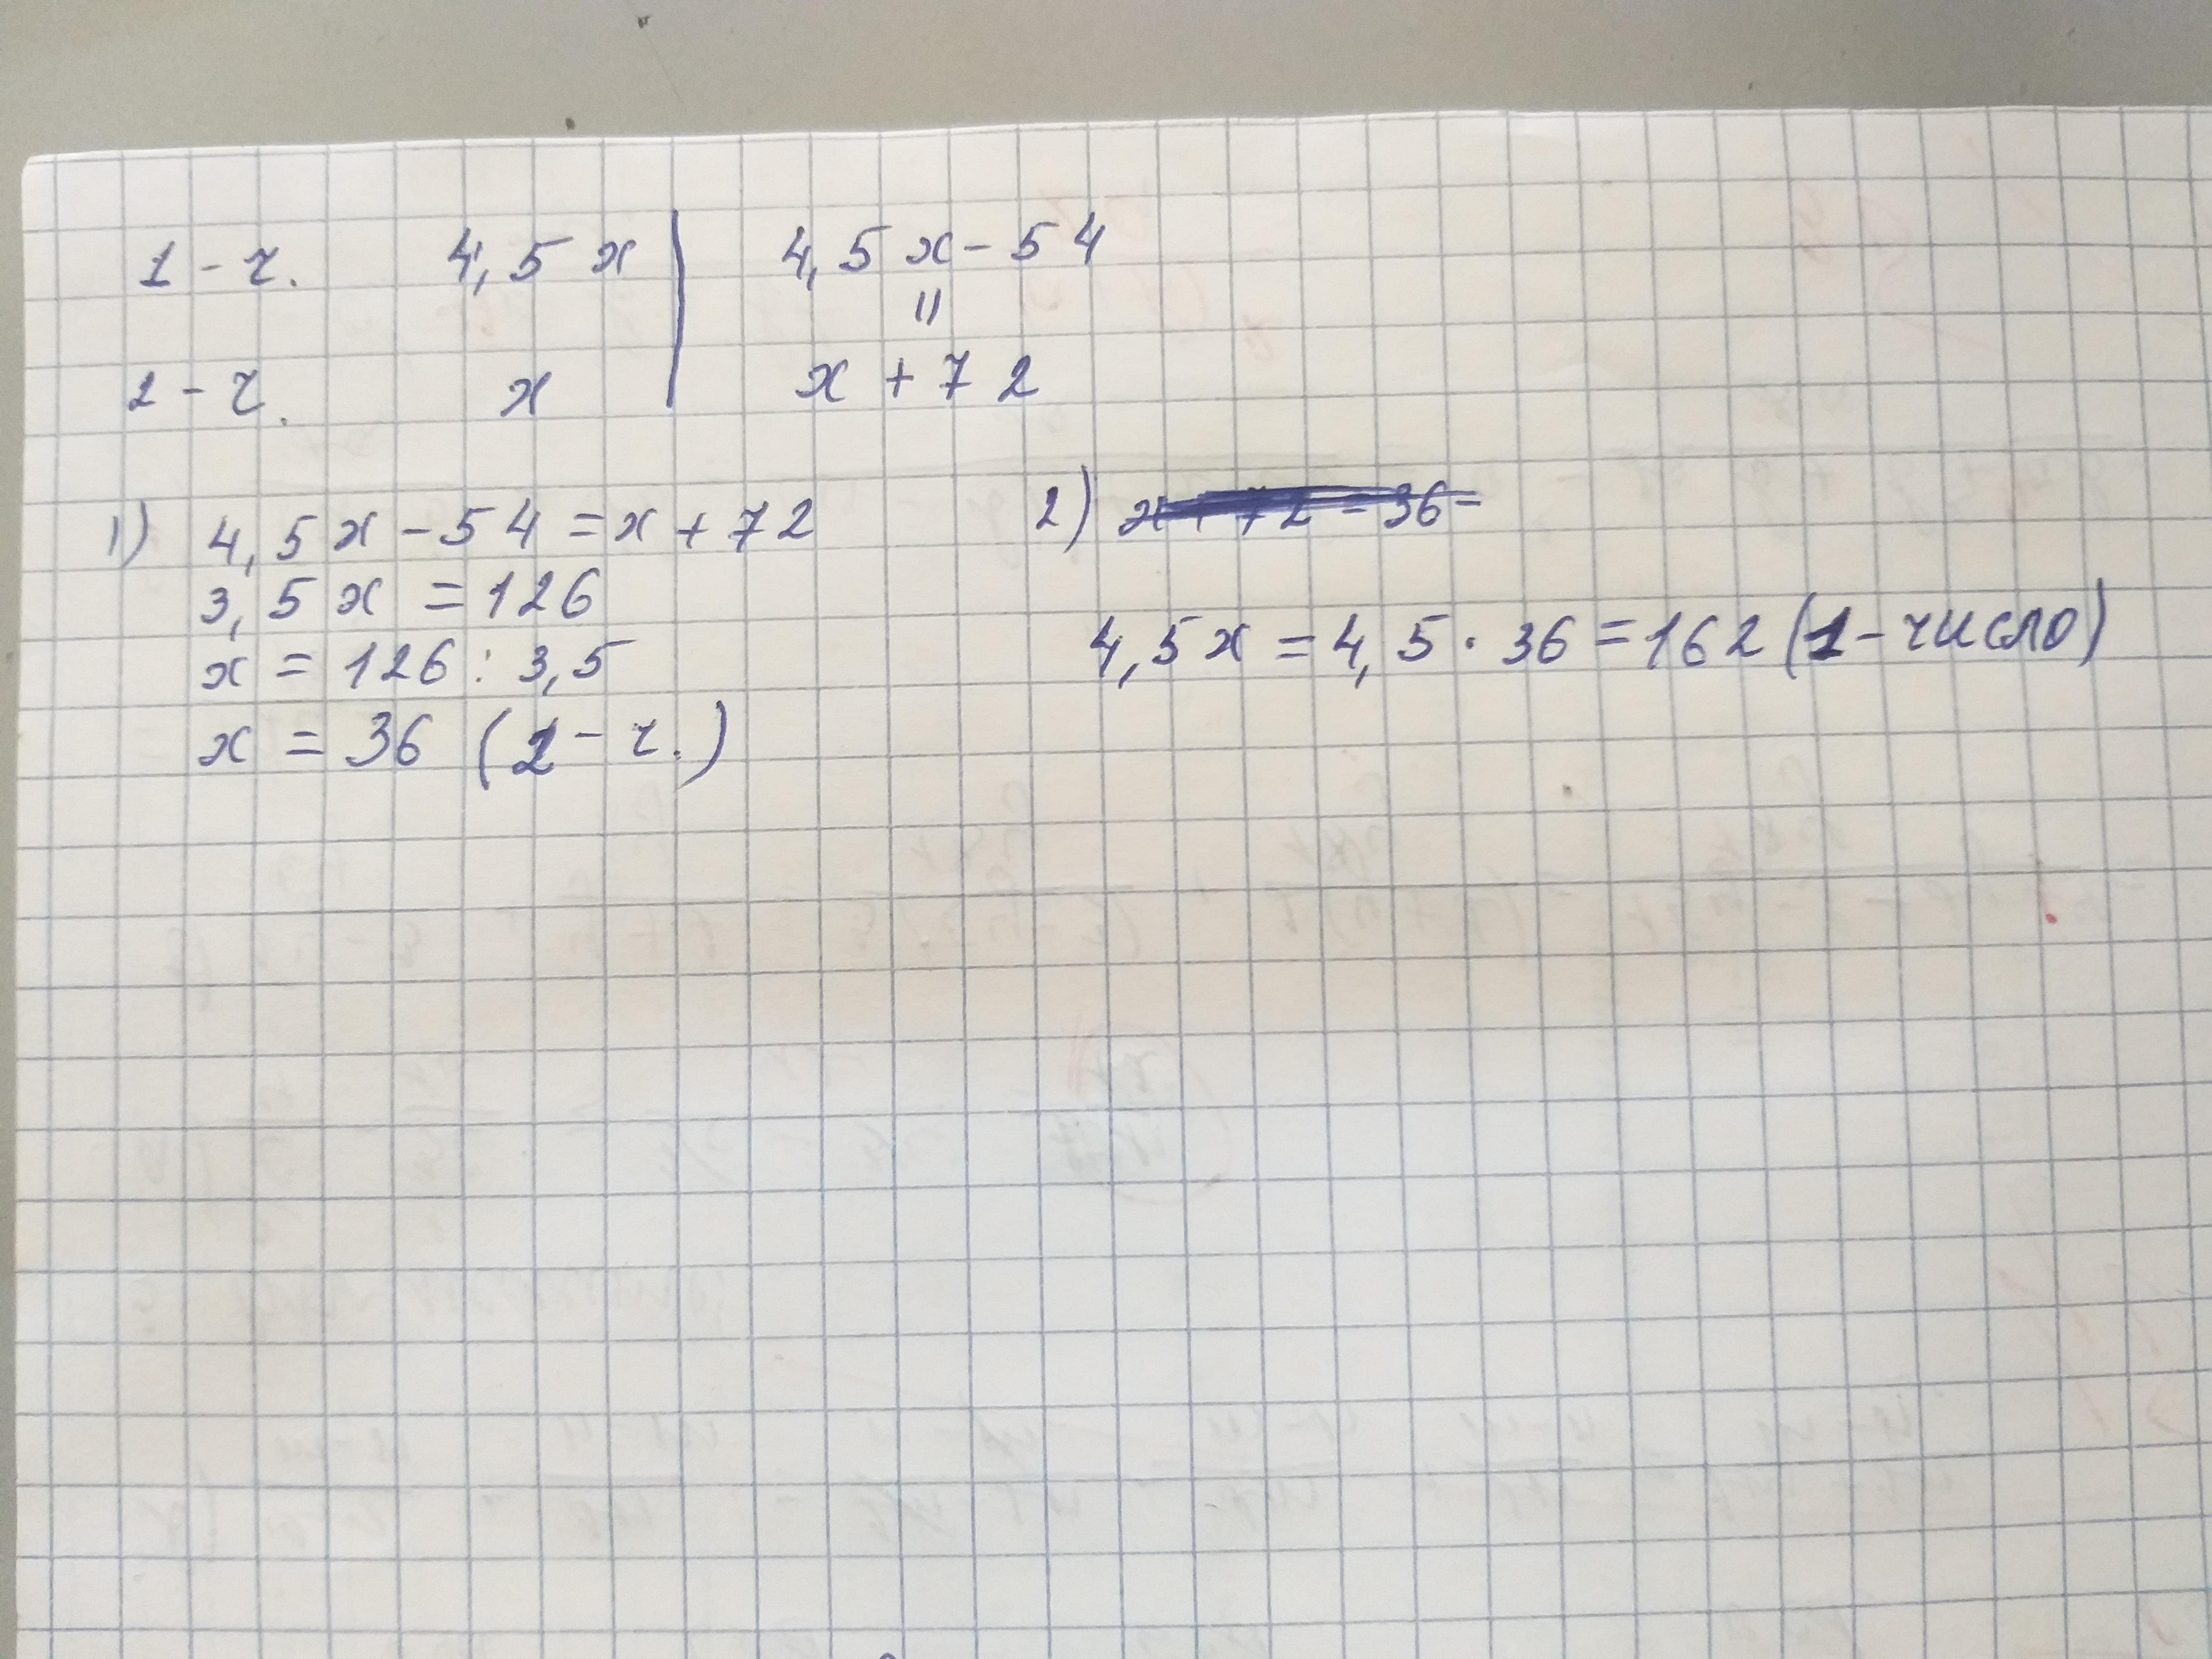 1 - ч. 4,5 x | 4,5 x - 54
=
2 - ч. x | x + 72
1) 4,5 x - 54 = x + 72
3,5 x = 126
x = 126 : 3,5
x = 36 (2 - ч.)
2)
4,5 x = 4,5 · 36 = 162 (1 - число)